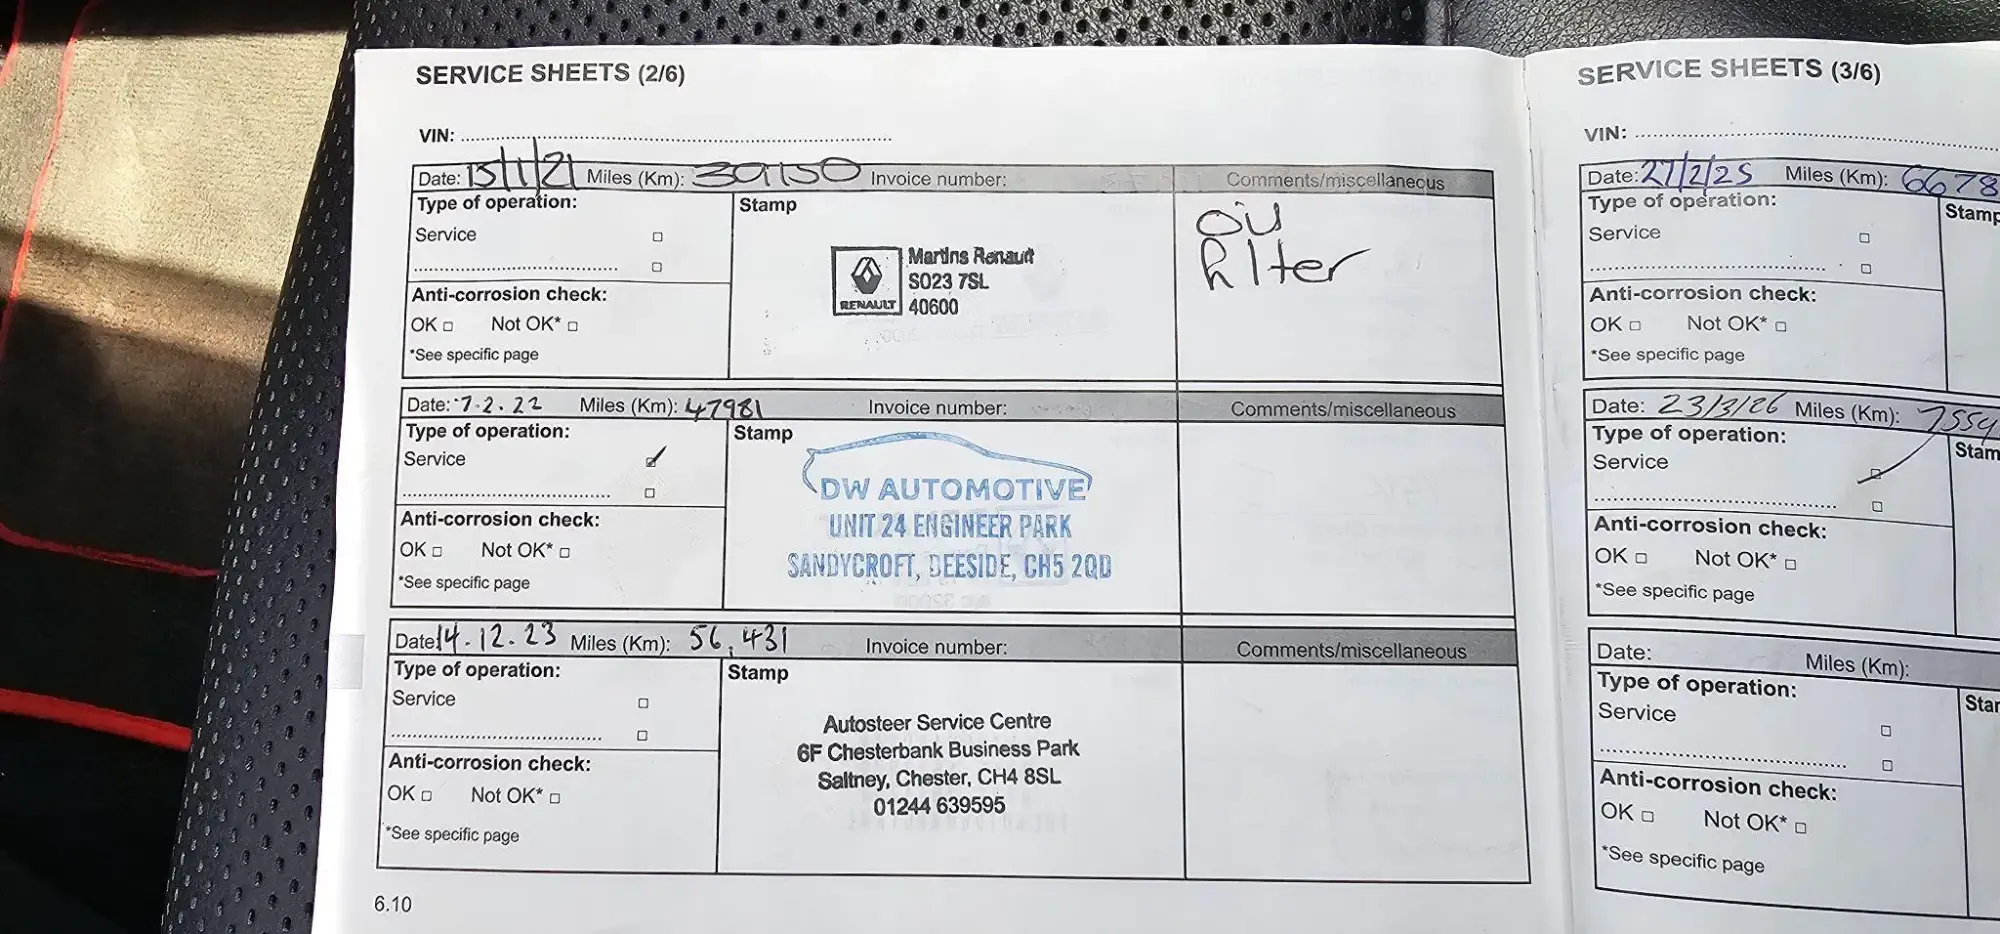 SERVICE SHEETS (2/6)
VIN:
Date: 15/1/21 Miles (Km): 39150 Invoice number: Comments/miscellaneous
Type of operation: Stamp
Service
Anti-corrosion check:
OK Not OK*
*See specific page
RENAULT
Martins Renault
SO23 7SL
40600
oil
filter
Date: 7.2.22 Miles (Km): 47981 Invoice number: Comments/miscellaneous
Type of operation: Stamp
Service
Anti-corrosion check:
OK Not OK*
*See specific page
DW AUTOMOTIVE
UNIT 24 ENGINEER PARK
SANDYCROFT, DEESIDE, CH5 2QD
Date 14.12.23 Miles (Km): 56,431 Invoice number: Comments/miscellaneous
Type of operation: Stamp
Service
Anti-corrosion check:
OK Not OK*
*See specific page
Autosteer Service Centre
6F Chesterbank Business Park
Saltney, Chester, CH4 8SL
01244 639595
6.10
SERVICE SHEETS (3/6)
VIN:
Date: 27/2/25 Miles (Km): 6678
Type of operation: Stamp
Service
Anti-corrosion check:
OK Not OK*
*See specific page
Date: 23/3/26 Miles (Km):
Type of operation: Stam
Service
Anti-corrosion check:
OK Not OK*
*See specific page
Date: Miles (Km):
Type of operation: Star
Service
Anti-corrosion check:
OK Not OK*
*See specific page